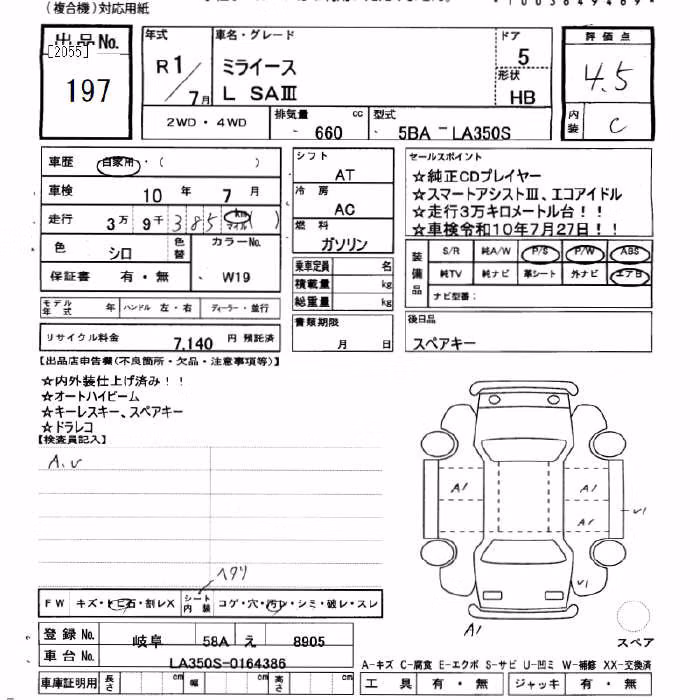 (複合機)対応用紙
出品No.
[2055]
197
年式
R1/7月
車名・グレード
ミライース
L SAⅢ
ドア
5
形状
HB
評価点
4.5
内装
C
2WD・4WD
排気量 660 cc
型式 5BA-LA350S
車歴 自家用・( )
車検 10年 7月
走行 3万9千385 km マイル ( )
色 シロ
色替
カラーNo.
W19
保証書 有・無
モデル年式 年
ハンドル 左・右
ディーラー・並行
リサイクル料金 7,140 円 預託済
シフト
AT
冷房
AC
燃料
ガソリン
乗車定員 名
積載量 kg
総重量 kg
書類期限
月 日
セールスポイント
☆純正CDプレイヤー
☆スマートアシストⅢ、エコアイドル
☆走行3万キロメートル台!!
☆車検令和10年7月27日!!
装備品
S/R 純A/W P/S P/W ABS
純TV 純ナビ 革シート 外ナビ エアB
ナビ型番:
後日品
スペアキー
【出品店申告欄(不良箇所・欠品・注意事項等)】
☆内外装仕上げ済み!!
☆オートハイビーム
☆キーレスキー、スペアキー
☆ドラレコ
【検査員記入】
A.U
ヘタリ
FW キズ・トビ石・割レX
シート内装 コゲ・穴・汚レ・シミ・破レ・スレ
A1
A1
A1
U1
U1
A1
スペア
登録No. 岐阜 58A え 8905
車台No. LA350S-0164386
車庫証明用 長さ cm 幅 cm 高さ cm
A-キズ C-腐食 E-エクボ S-サビ U-凹ミ W-補修 XX-交換済
工具 有・無 ジャッキ 有・無